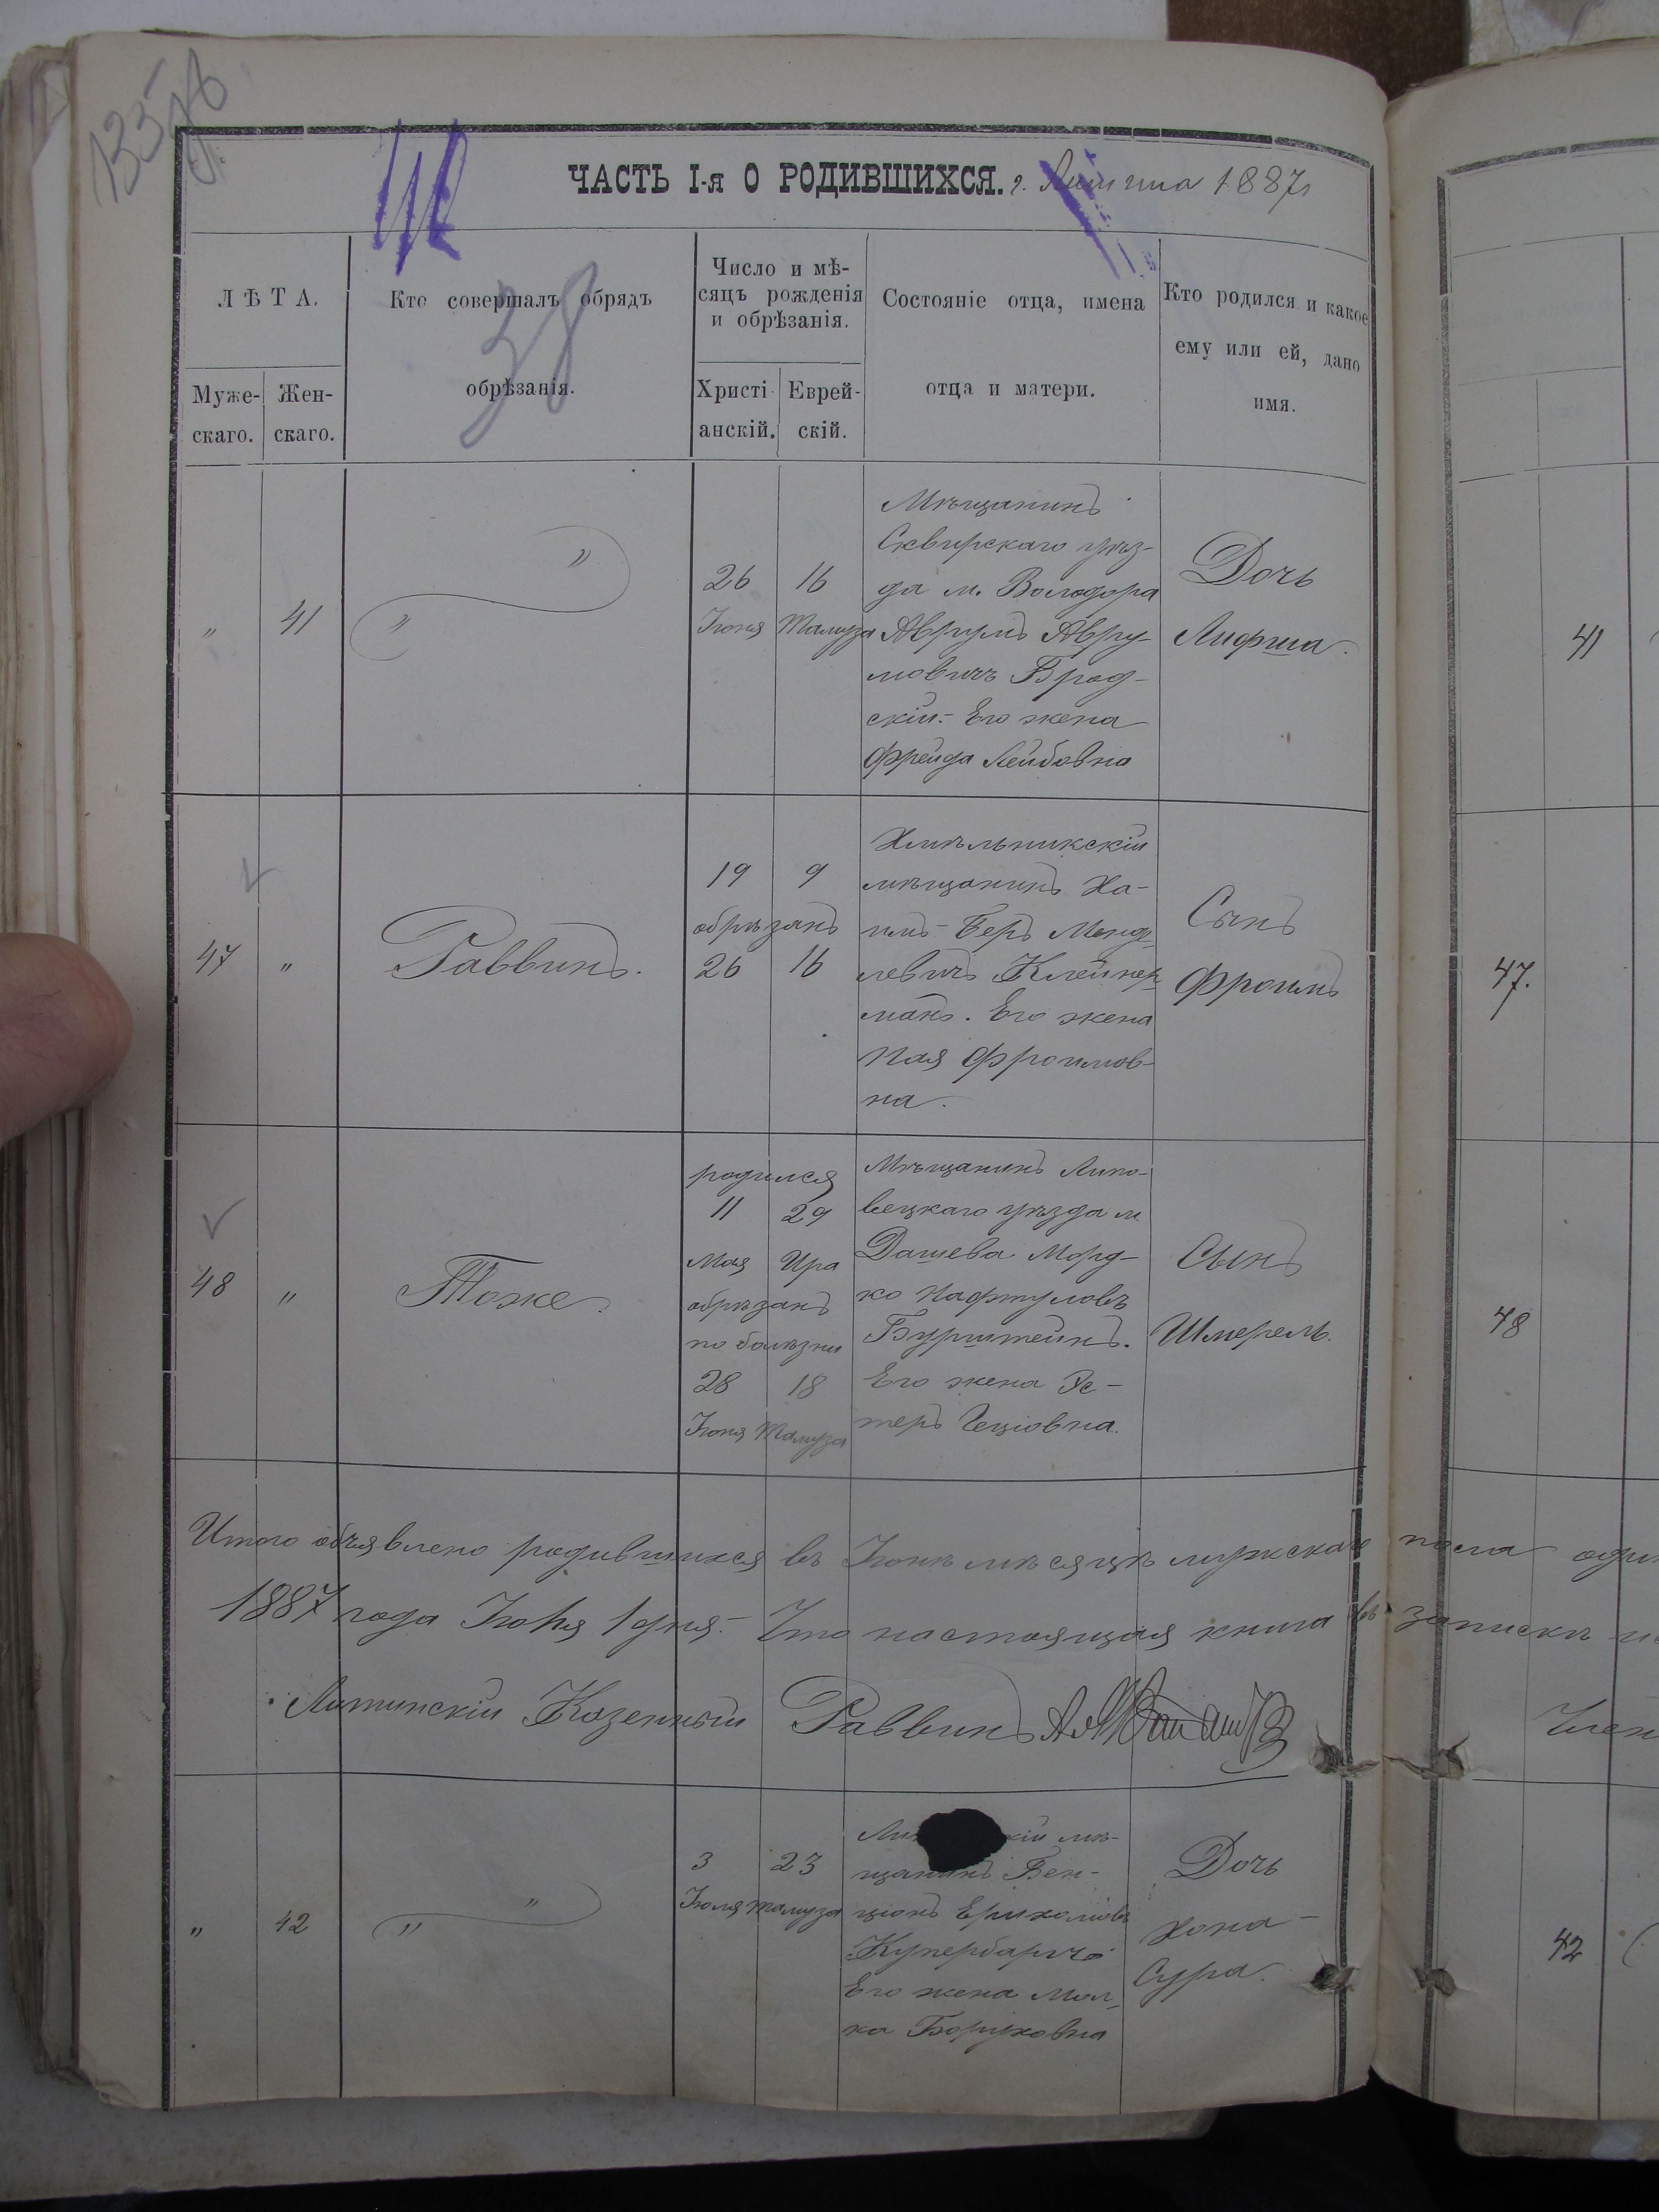 ЧАСТЬ I-я О РОДИВШИХСЯ. г. Литина 1887 г
38
ЛѢТА.
Муже-
скаго.
Жен-
скаго.
Кто совершалъ обрядъ
обрѣзанія.
Число и мѣ-
сяцъ рожденія
и обрѣзанія.
Христі
анскій.
Еврей-
скій.
Состояніе отца, имена
отца и матери.
Кто родился и какое
ему или ей, дано
имя.
"
41
" "
26 16
Іюня Тамуза
Мѣщанинъ
Сквирскаго уѣз-
да м. Володора
Аврумъ Авру-
мовичъ Брод-
скій.- Его жена
Фрейда Лейбовна
Дочь
Лифша.
41
47
"
Раввинъ.
19 9
обрѣзанъ
26 16
Хмѣльникскій
мѣщанинъ Ха-
имъ-Беръ Менд-
левичъ Клейнер
манъ. Его жена
Фроимов-
на.
Сынъ
Фроимъ
47.
48
"
Тоже.
родился
11 29
Мая Ира
обрѣзанъ
по болѣзни
28 18
Іюня Тамуза
Мѣщанинъ Липо-
вецкаго уѣзда м.
Дашева Морд-
ко Нафтуловъ
Бурштейнъ.
Его жена Эс-
теръ Гецiовна.
Сынъ
Шмерель.
48
Итого объявлено родившихся въ Іюнѣ мѣсяцѣ мужскаго пола
1887 года Іюля 1 дня.- Что настоящая книга въ запискѣ
Литинскій Козенный Раввинъ
Член
"
42
" "
3 23
Іюля Тамуза
кій мѣ-
щанинъ Бен-
ціонъ
Купербаргъ
Его жена Мал-
ка Боруховна
Дочь
Хона-
Сура.
42